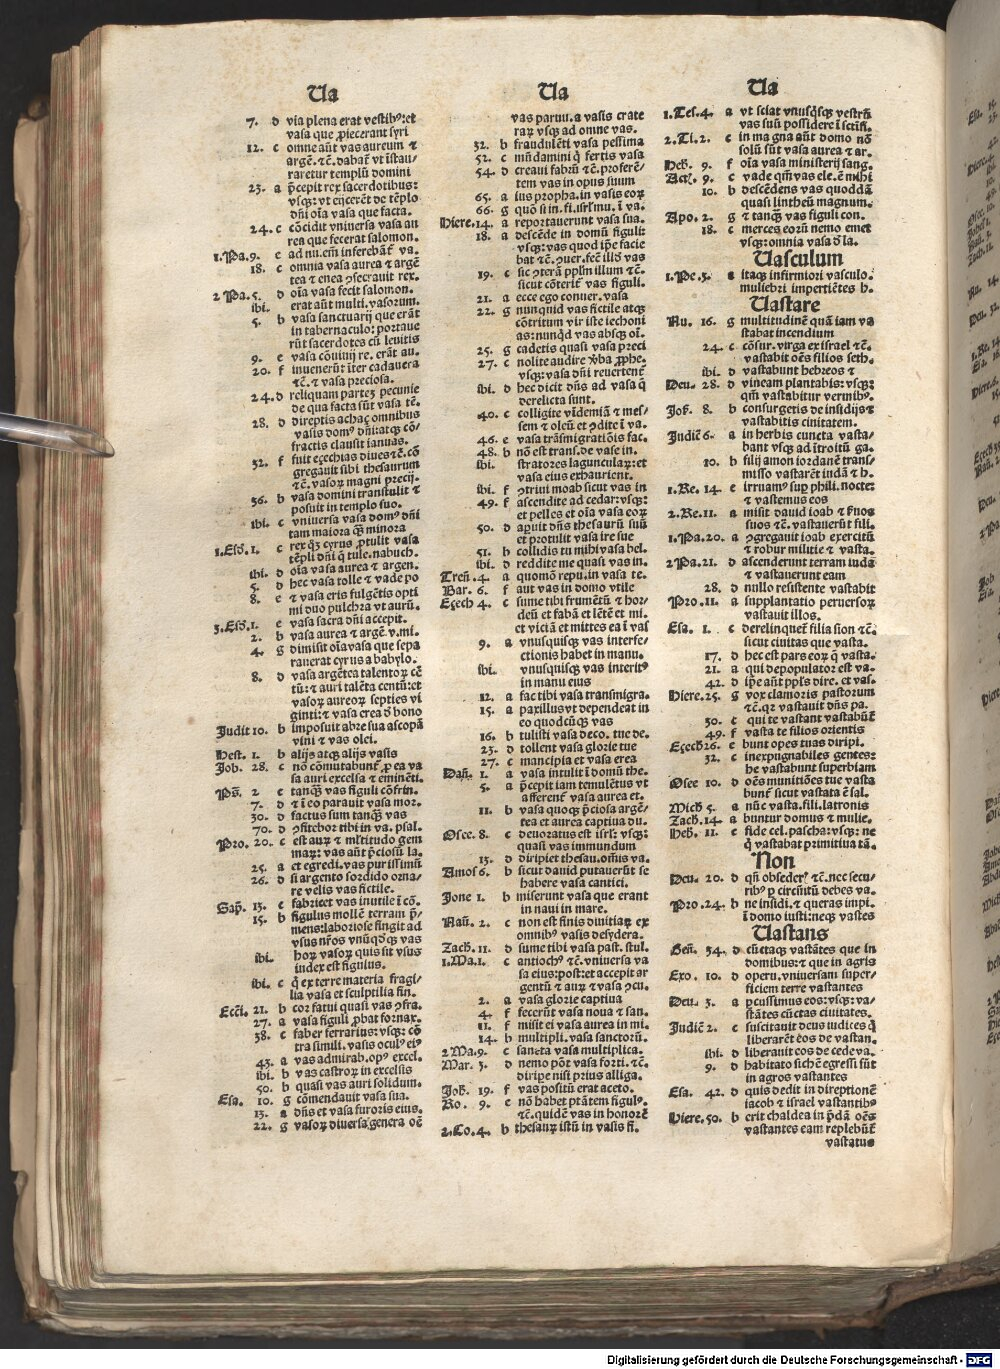 Ua
7. d via plena erat vestibꝰ: et
vasa que ꝓiecerant syri
12. c omne aūt vas aureum ⁊
argē. ⁊c̄. dabāt̄ vt īstau/
raretur templū domini
23. a p̄cepit rex sacerdotibus:
vsqꝫ: vt eijcerēt de tēplo
dn̄i oīa vasa que facta.
24. c cōcidit vniuersa vasa au
rea que fecerat salomon.
1. Pa. 9. c ad nu. em̄ inferebāt̄ va.
18. c omnia vasa aurea ⁊ argē
tea ⁊ enea ꝯsecrauit rex.
2 Pa. 5. d oīa vasa fecit salomon.
ibi. erat aūt multi. vasorum.
5. b vasa sanctuarij que erāt
in tabernaculo: portaue
rūt sacerdotes cū leuitis
9. e vasa cōuiuij re. erāt au.
20. f inuenerūt īter cadauera
⁊c̄. ⁊ vasa preciosa.
24. d reliquam partez pecunie
de qua facta sūt vasa tē.
28. d direptis achaç omnibus
vasis domꝰ dn̄i: atqꝫ cō/
fractis clausit ianuas.
32. f fuit eçechias diues ⁊c̄. cō
gregauit sibi thesaurum
⁊c̄. vasoꝝ magni precij.
36. b vasa domini transtulit ⁊
posuit in templo suo.
ibi. c vniuersa vasa domꝰ dn̄i
tam maiora q̄ꝫ minora
1. Esd̄. 1. c rex qꝫ cyrus ꝓtulit vasa
tēpli dn̄i q̄ tule. nabuch.
ibi. d oīa vasa aurea ⁊ argen.
5. d hec vasa tolle ⁊ vade po
8. e ⁊ vasa eris fulgētis opti
mi duo pulchra vt aurū.
3. Esd̄. 1. e vasa sacra dn̄i accepit.
2. b vasa aurea ⁊ argē v. mi.
4. g dimisit oīa vasa que sepa
rauerat cyrus a babylo.
8. d vasa argētea talentoꝝ cē
tū: ⁊ auri talēta centū: et
vasoꝝ aureoꝝ septies vi
ginti: ⁊ vasa crea d̄ bono
Judit 10. b imposuit abre sua ascopā
vini ⁊ vas olei.
Hest. 1. b alijs atqꝫ alijs vasis
Job. 28. c nō cōmutabunt̄ ꝓ ea va
sa auri excelsa ⁊ eminēti.
Ps̄. 2 c tanq̄ꝫ vas figuli cōfrin.
7. d ⁊ ī eo parauit vasa mor.
30. d factus sum tanq̄ꝫ vas
70. d ꝯfitebor tibi in va. psal.
Pro. 20. c est auꝝ ⁊ ml̄titudo gem
maꝝ: vas aūt p̄ciosū la.
25. a et egredi. vas purissimū
26. d si argento sordido orna/
re velis vas fictile.
Sap̄. 13. c fabricet vas inutile ī cō.
15. b figulus mollē terram p̄/
mens: laboriose fingit ad
vsus nr̄os vnūqd̄qꝫ vas
ibi. hoꝝ vasoꝝ quis sit vsus
iudex est figulus.
ibi. c q̄ ex terre materia fragi/
lia vasa et sculptilia fin.
Ecc̄i. 21. b cor fatui quasi vas ꝯfra.
27. a vasa figuli ꝓbat fornax.
38. c faber ferrarius: vsqꝫ: cō
tra simili. vasis oculꝰ eiꝰ
43. a vas admirab. opꝰ excel.
ibi. b vas castroꝝ in excelsis
50. b quasi vas auri solidum.
Esa. 10. g cōmendauit vasa sua.
13. a dn̄s et vasa furoris eius.
22. g vasoꝝ diuersa genera oē
Ua
vas paruu. a vasis crate
raꝝ vsqꝫ ad omne vas.
32. b fraudulēti vasa pessima
52. c mūdamini q̄ fertis vasa
54. d creaui fabrū ⁊c̄. proferē/
tem vas in opus suum
65. a ius propha. in vasis eoꝝ
66. g quō si in. fi. isrl̄ mu. ī va.
Hiere. 14. a reportauerunt vasa sua.
18. a descēde in domū figuli:
vsqꝫ: vas quod ip̄e facie
bat ⁊c̄. ꝯuer. fec̄ illd̄ vas
19. c sic ꝯterā pplm̄ illum ⁊c̄.
sicut cōterit̄ vas figuli.
21. a ecce ego conuer. vasa
22. g nunquid vas fictile atqꝫ
cōtritum vir iste iechoni
as: nunqd̄ vas absqꝫ oī.
25. g cadetis quasi vasa p̄eci
27. c nolite audire v̓ba ꝓphe.
vsqꝫ: vasa dn̄i reuertent̄
ibi. d hec dicit dn̄s ad vasa q̄
derelicta sunt.
40. c colligite vīdemiā ⁊ mes/
sem ⁊ oleū et ꝯdite ī va.
46. e vasa trāsmigratiōis fac.
48. b nō est trans. de vase in.
ibi. stratores laguncularꝫ: et
vasa eius exhaurient.
ibi. f ꝯtriui moab sicut vas in
49. f ascendite ad cedar: vsqꝫ:
et pelles et oīa vasa eoꝝ
50. d apuit dn̄s thesaurū suū
et protulit vasa ire sue
51. b collidis tu mihi vasa bel.
ibi. d reddit me quasi vas in.
Tren̄. 4. a quomō repu. in vasa te.
Bar. 6. f aut vas in domo vtile
Eçech 4. c sume tibi frumētū ⁊ hor/
deū et fabā et lētē et mi.
et viciā et mittes ea ī vas
9. a vnusquisqꝫ vas interfe/
ctionis habet in manu.
ibi. vnusquisqꝫ vas interitꝰ
in manu eius
12. a fac tibi vasa transmigra.
15. a paxillus vt dependeat in
eo quodcūqꝫ vas
16. b tulisti vasa deco. tue de.
23. d tollent vasa glorie tue
27. c mancipia et vasa erea
Dan̄. 1. a vasa intulit ī domū the.
5. a p̄cepit iam temulētus vt
afferent̄ vasa aurea et.
11. b vasa quoqꝫ p̄ciosa argē/
tea et aurea captiua du.
Osee. 8. c deuoratus est isrl̄: vsqꝫ:
quasi vas immundum
13. d diripiet thesau. om̄is va.
Amos 6. b sicut dauid putauerūt se
habere vasa cantici.
Jone 1. b miserunt vasa que erant
in naui in mare.
Nau̅. 2. c non est finis diuitiaꝝ ex
omnibꝰ vasis desydera.
Zach. 11. d sume tibi vasa past. stul.
1. Ma. 1. c antiochꝰ ⁊c̄. vniuersa va
sa eius: post: et accepit ar
gentū ⁊ auꝝ ⁊ vasa ꝯcu.
2. a vasa glorie captiua
4. f fecerūt vasa noua ⁊ san.
11. f misit ei vasa aurea in mi.
14. b multipli. vasa sanctorū.
2 Ma. 9. c sancta vasa multiplica.
Mar. 3. d nemo pōt vasa forti. ⁊c̄.
diripe nisi prius alliga.
Joh. 19. f vas positū erat aceto.
Ro. 9. c nō habet ptātem figulꝰ.
⁊c̄. quidē vas in honorē
2. Co. 4. b thesauꝝ istū in vasis fi.
Ua
1. Tes. 4. a vt sciat vnusqsqꝫ vestrū
vas suū possidere ī sctīfi.
2. Ti. 2. c in magna aūt domo nō
solū sūt vasa aurea ⁊ ar.
Heb. 9. f oīa vasa ministerij sang.
Act̄. 9. c vade qm̄ vas ele. ē mihi
10. b descēdens vas quoddā
quasi lintheū magnum.
Apo. 2. g ⁊ tanqꝫ vas figuli con.
18. c merces eorū nemo emet
vsqꝫ: omnia vasa d̄ la.
Uasculum
1. Pe. 3. a itaqꝫ infirmiori vasculo.
muliebri impertiētes h.
Uastare
Nu. 16. g multitudinē quā iam va
stabat incendium
24. c cōsur. virga ex israel ⁊c̄.
vastabit oēs filios seth.
ibi. d vastabunt hebreos ⁊
Deu. 28. d vineam plantabis: vsqꝫ:
qm̄ vastabitur vermibꝰ.
Jos. 8. b consurgetis de insidijs ⁊
vastabitis ciuitatem.
Judic̄ 6. a in herbis cuncta vasta/
bant vsqꝫ ad ītroitū ga.
10. b filij amon iordanē trans/
misso vastarēt iudā ⁊ b.
1. Re. 14. e irruamꝰ suꝑ phili. nocte:
⁊ vastemus eos
2. Re. 11. a misit dauid ioab ⁊ s̓uos
suos ⁊c̄. vastauerūt fili.
1. Pa. 20. a ꝯgregauit ioab exercitū
⁊ robur militie ⁊ vasta.
2 Pa. 21. d ascenderunt terram iuda
⁊ vastauerunt eam
28. d nullo resistente vastabit
Pro. 11. a supplantatio peruersoꝝ
vastauit illos.
Esa. 1. c derelinquet̄ filia sion ⁊c̄.
sicut ciuitas que vasta.
17. d hec est pars eoꝝ q̄ vasta.
21. a qui depopulator est va.
42. d ip̄e aūt ppl̄s dire. et vas.
Hiere. 25. g vox clamoris pastorum
⁊c̄. qꝛ vastauit dn̄s pa.
30. c qui te vastant vastabūt̄
49. f vasta te filios orientis
Eçech 26. c bunt opes tuas diripi.
32. c inexpugnabiles gentes:
he vastabunt superbiam
Osee 10. d oēs munitiōes tue vasta
bunt̄ sicut vastata ē sal.
Mich 5. a nūc vasta. fili. latronis
Zach. 14. a buntur domus ⁊ mulie.
Heb. 11. e fide cel. pascha: vsqꝫ: ne
q̄ vastabat primitiua tā.
Non
Deu. 20. d qn̄ obsederꝭ ⁊c̄. nec secu/
ribꝰ p circūitū debes va.
Pro. 24. b ne insidi. ⁊ queras impi.
ī domo iusti: neqꝫ vastes
Uastans
Gen̄. 34. d cūctaqꝫ vastātes que in
domibus: ⁊ que in agris
Exo. 10. d operu. vniuersam super/
ficiem terre vastantes
Deu. 3. a pcussimus eos: vsqꝫ: va/
stātes cūctas ciuitates.
Judic̄ 2. c suscitauit deus iudices q̄
liberarēt eos de vastan.
ibi. d liberauit eos de cede va.
9. d habitato sichē egressi sūt
in agros vastantes
Esa. 42. d quis dedit in direptionē
iacob ⁊ israel vastantibꝰ
Hiere. 50. b erit chaldea in p̄dā oēs
vastantes eam replebūt̄
vastatus
Digitalisierung gefördert durch die Deutsche Forschungsgemeinschaft - DFG